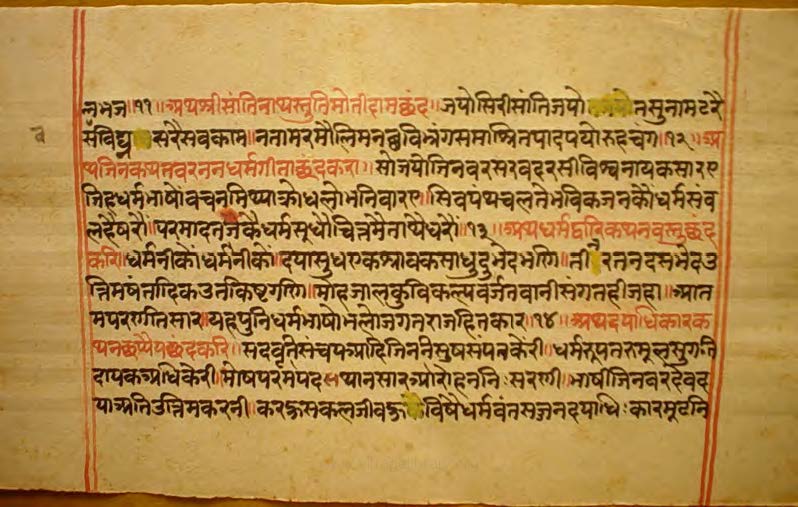 लभज॥११॥अथश्रीसांतिनाथस्तुतिमोतीदामछंद॥जयोसिरीसांतिजयो नसुनामटरै
सरैसवकाम॥नतामरमौलि
थजिनकथतवरननधर्मगीताछंदकरा॥सोजयौजिनवरसरवदरसीविश्वनायकसारए
जिहधर्मभाषौंवचनमिथ्याक्रोधलोभनिवारए॥सिवपंथचलतेभविकजनकौंधर्मसंव
लहैषरौं॥परमादतजकैधर्मसूधौचित्तमैताथैधरौं॥१३॥अथधर्मद्वारिकथनवस्तुछंद
करि॥धर्मनीकौंधर्मनीकौं॥दयासुधएकश्रावकसाधुदुभेदभणि॥ती रतनदसभेदउ
त्तिमषंतादिकउतकिष्टगणि॥मोहजालकुविकल्पवर्जतवानीसंगतहीजहा॥आत
मपरणतिसार॥यहपुनिधर्मभाषोभलोजगतराजहितकार॥१४॥अथदयाधिकारक
थनछप्पैयछंदकरि॥सदवृतिसंचयआदिजिननिसुषसंपतकेरी॥धर्मरूपतरुमूलसुगति
दायकअधिकेरी॥मोषपरंमपद थानसारआरोहननिःसरणी॥भाषीजिनवरदेवद
याअतिउत्तिमकरनी॥करहुसकलजीवहु विषैधर्मवंतसज्जनदयाधिःकारमूटनि